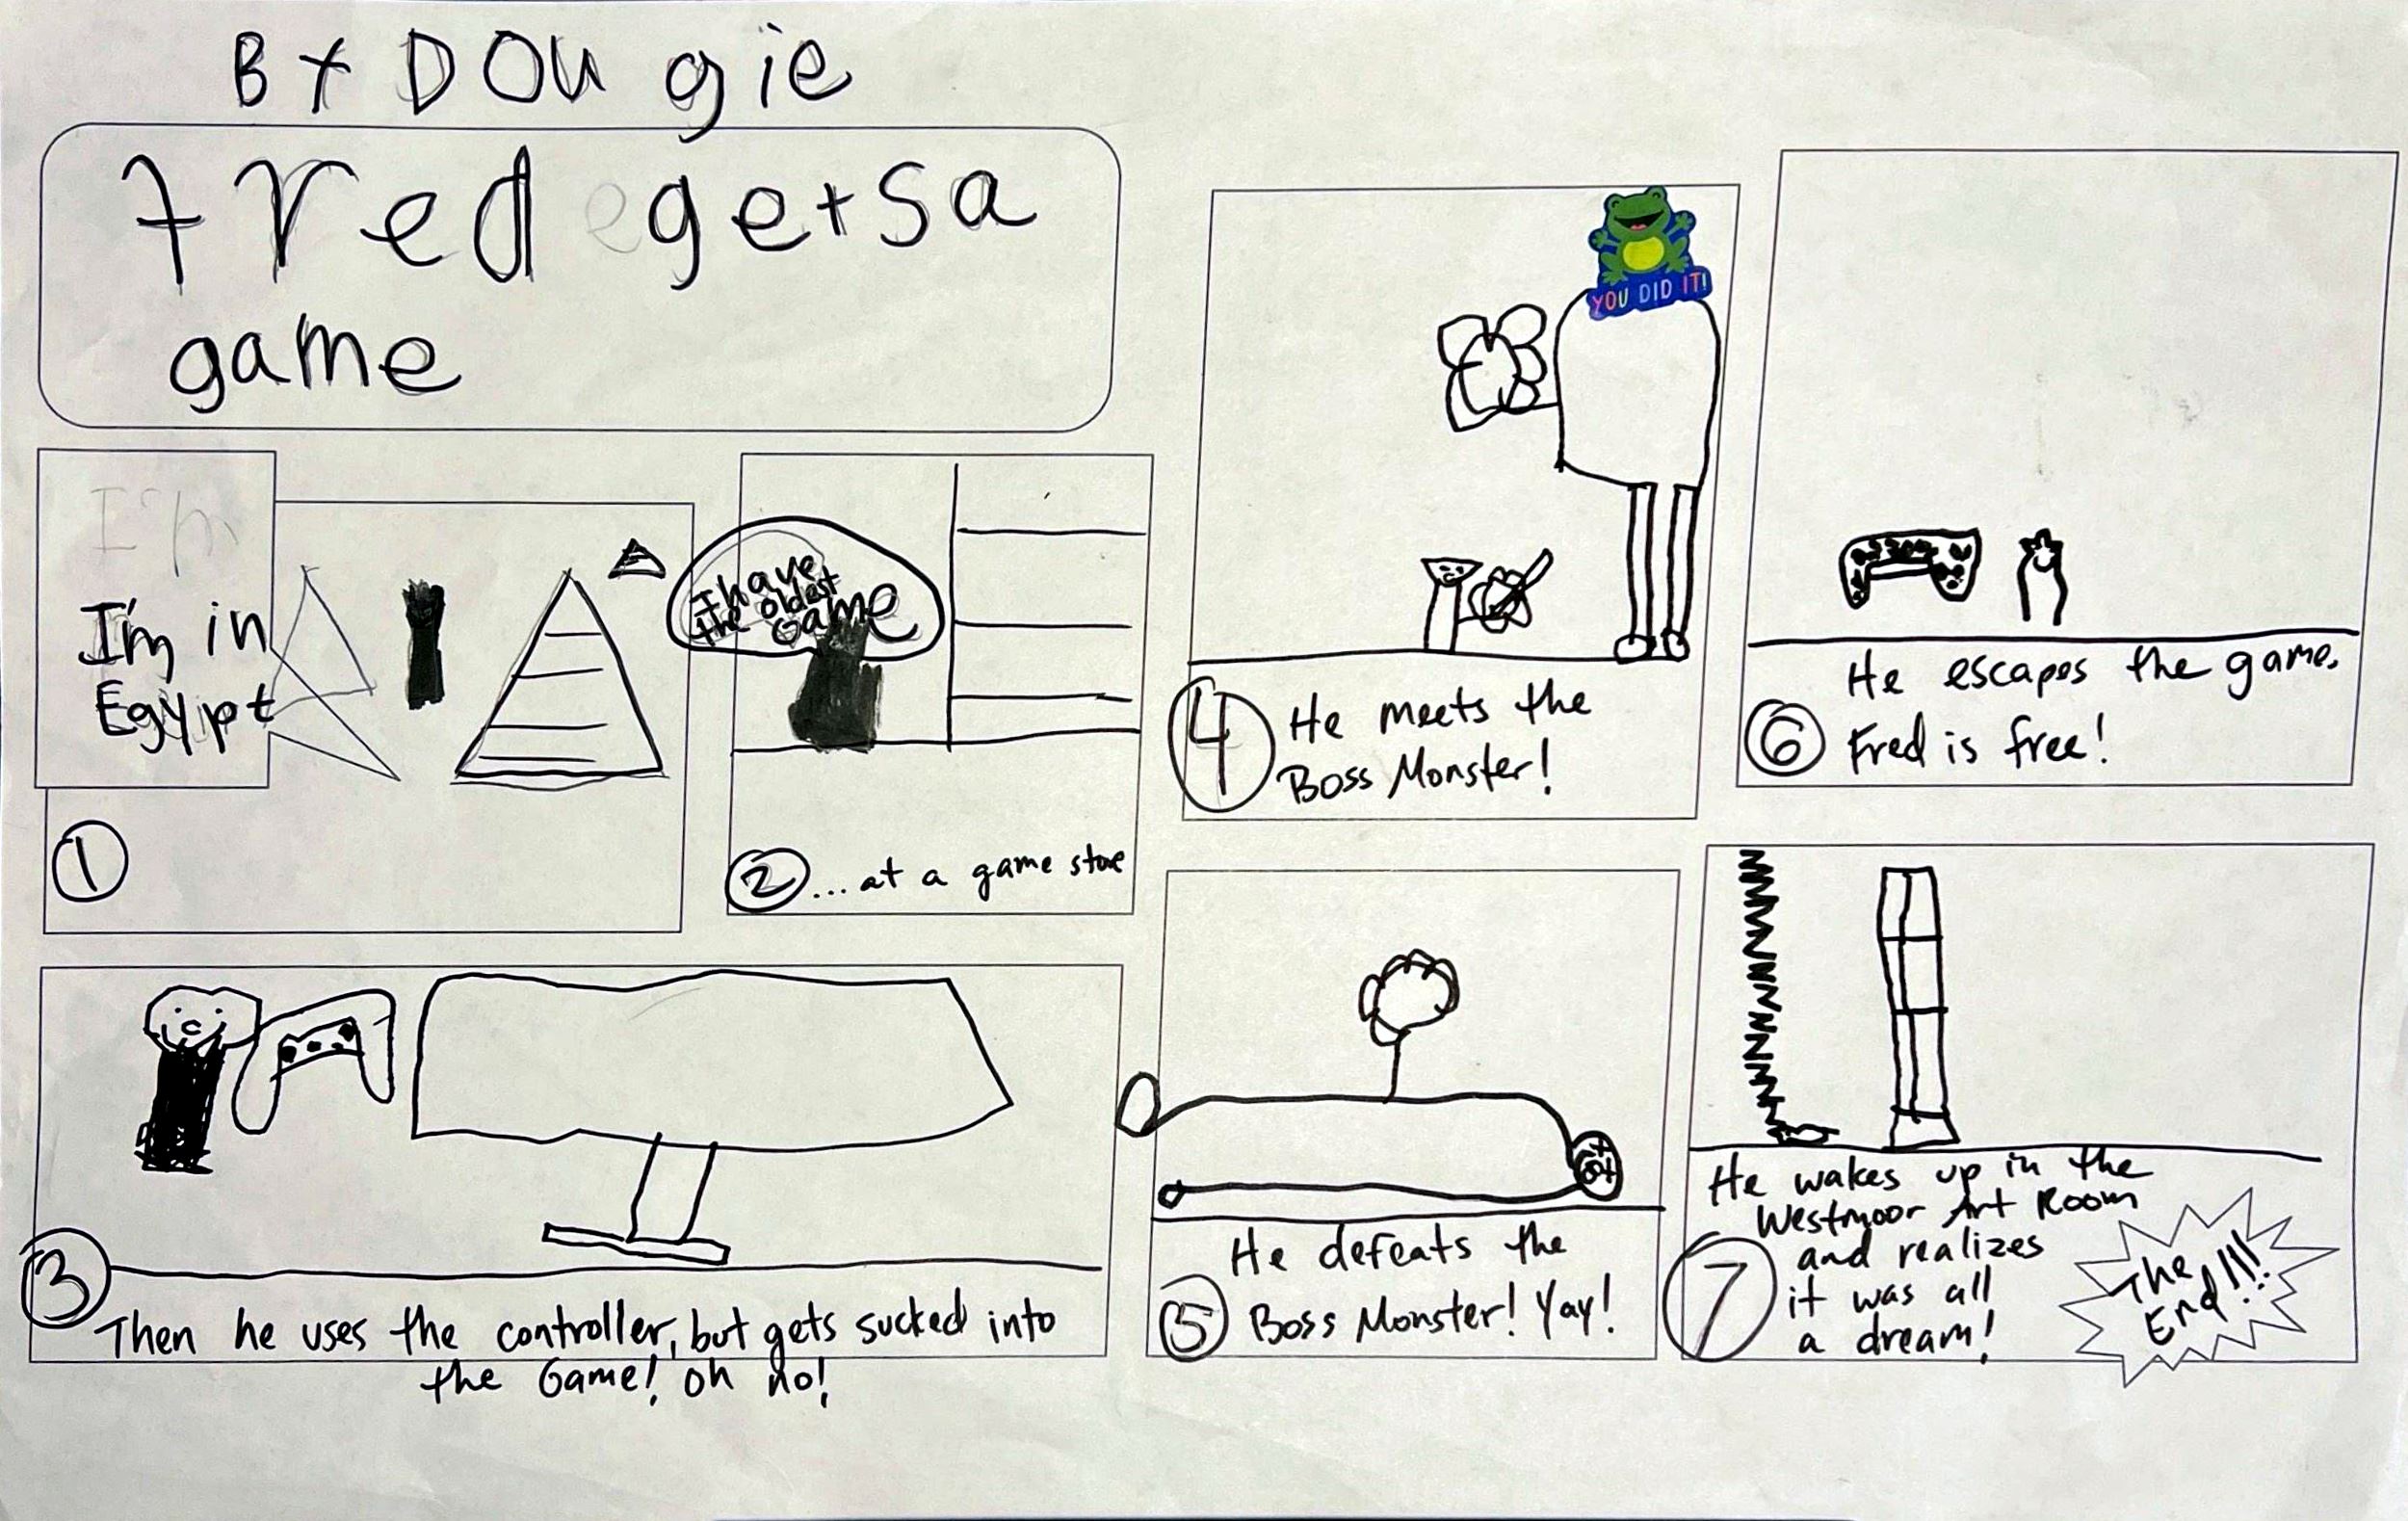 BY DOUgie
fred gets a
game
I'm
I'm in
Egypt
1
I have
the oldest
Game
2 ...at a game store
3
Then he uses the controller, but gets sucked into
the Game! oh no!
YOU DID IT!
4 He meets the
Boss Monster!
He defeats the
5 Boss Monster! Yay!
He escapes the game.
6 Fred is free!
He wakes up in the
Westmoor Art Room
7 and realizes
it was all
a dream!
The
End!!!